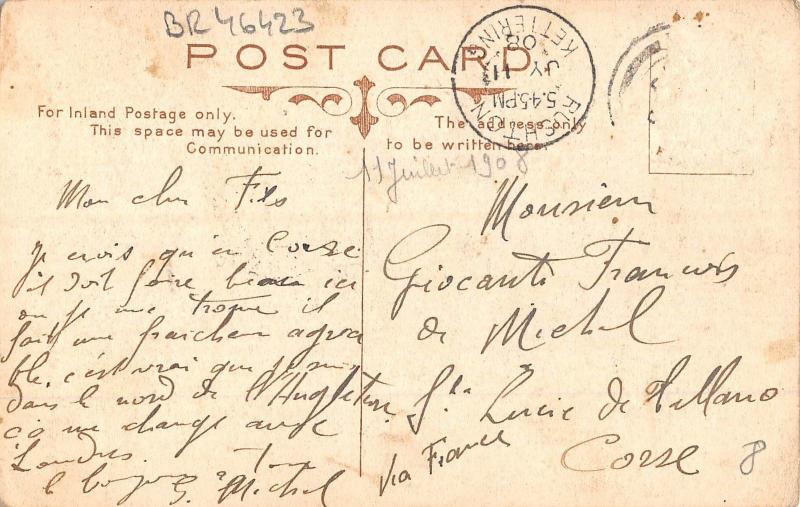 BR 46423
POST CARD
RUSHTON KETTERING
5.45 PM
11
JY
08
For Inland Postage only.
This space may be used for
Communication.
The address only
to be written here.
11 Juillet 1908
Mon cher Fils
Je crois qu'en Corse
il doit faire beau ici
ou je me trouve il
fait une fraicheur agrea
ble, c'est vrai que je suis
dans le nord de l'Angleterre
ça me change avec
Londres.
Michel
Monsieur
Giocanti Francois
de Michel
Sta Lucie de Tallano
Via France
Corse
8